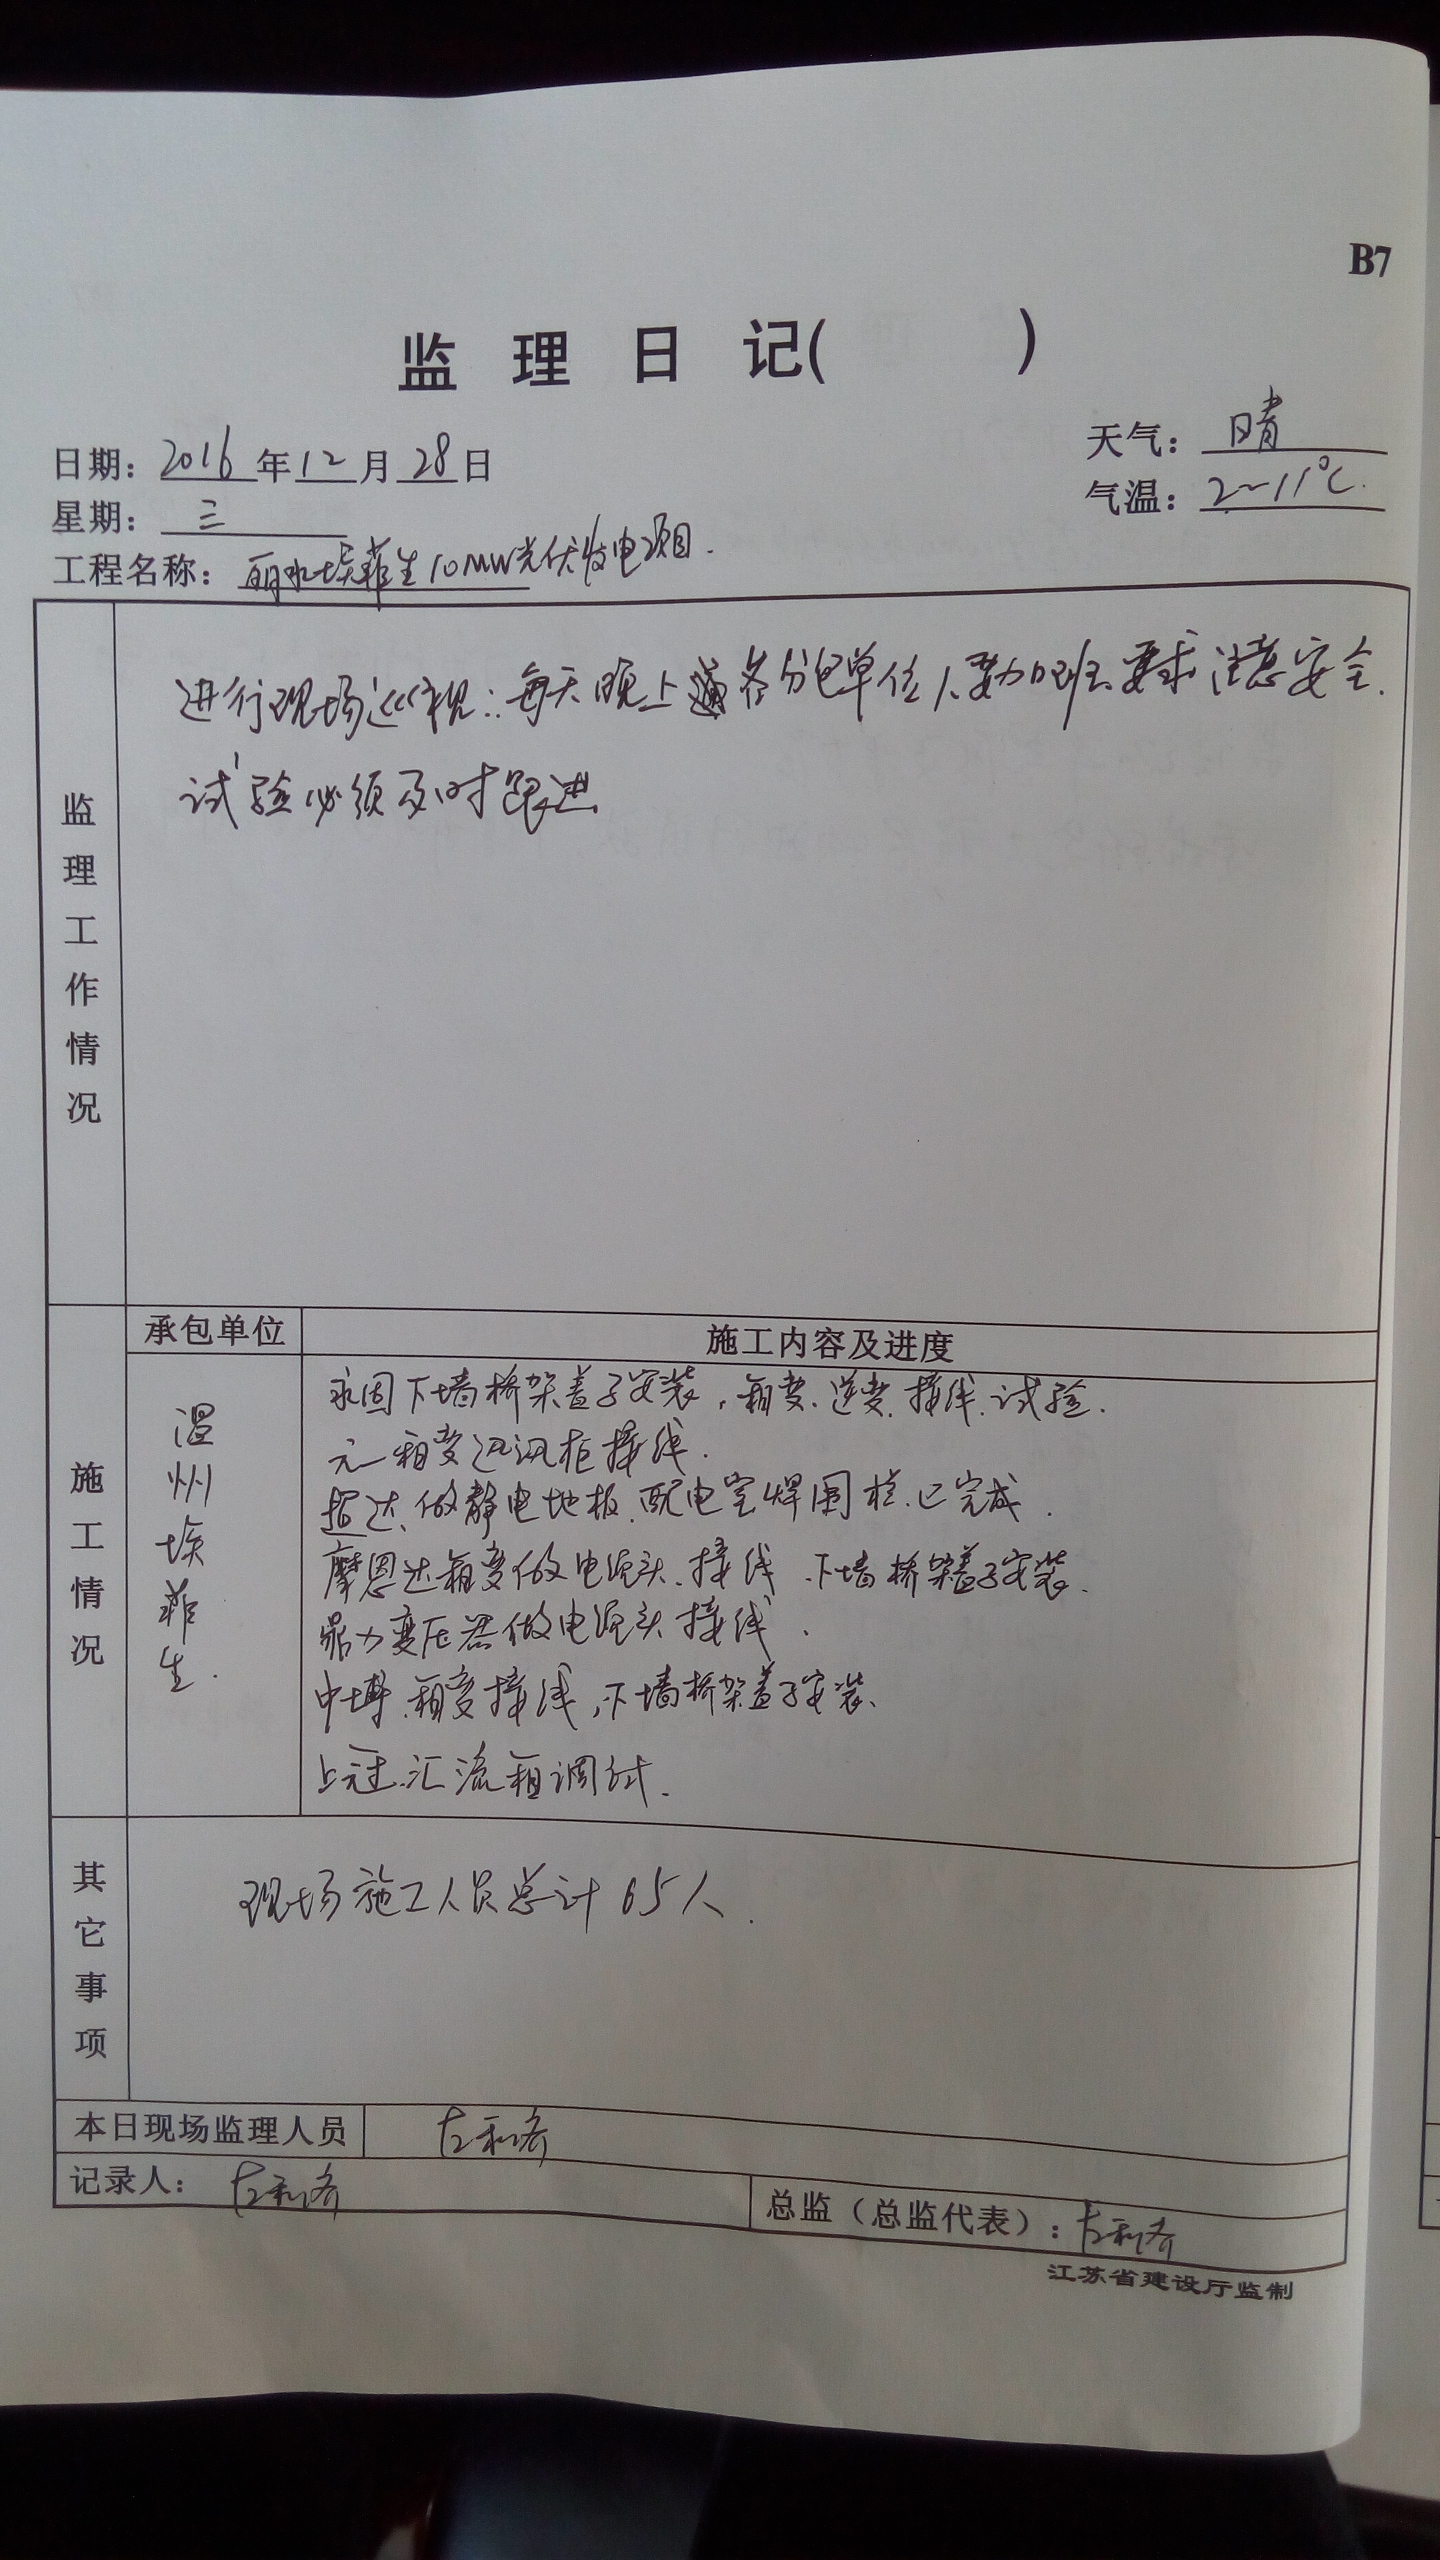 B7
监 理 日 记(          )
日期: 2016 年 12 月 28 日
天气: 晴
星期: 三
气温: 2~11℃.
工程名称: 丽水埃菲生10MW光伏发电项目.
监理工作情况
进行现场巡视:每天晚上各分包单位人要加班.要求注意安全.
试验必须及时跟进
承包单位
施工内容及进度
施工情况
温州埃菲生.
永固下墙桥架盖子安装,箱变.逆变.接线.试验.
元一箱变通讯柜接线.
超达.做静电地板.配电室焊围栏.已完成.
摩恩达箱变做电缆头.接线.下墙桥架盖子安装.
鼎力变压器做电缆头接线.
中博.箱变接线,下墙桥架盖子安装.
上冠.汇流箱调试.
其它事项
现场施工人员总计65人.
本日现场监理人员
记录人:
总监(总监代表):
江苏省建设厅监制